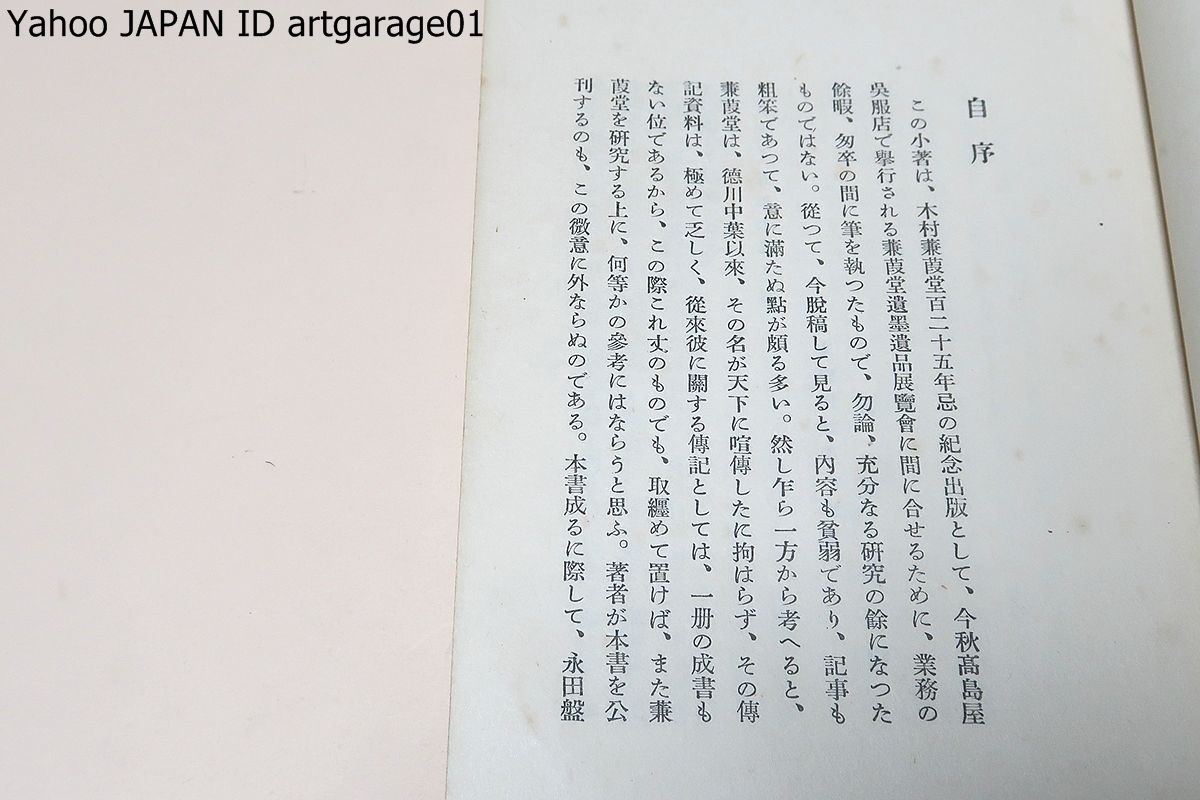 Yahoo JAPAN ID artgarage01
自序
この小著は、木村蒹葭堂百二十五年忌の紀念出版として、今秋髙島屋
吳服店で擧行される蒹葭堂遺墨遺品展覽會に間に合せるために、業務の
餘暇、匆卒の間に筆を執つたもので、勿論、充分なる硏究の餘になつた
ものではない。從つて、今脫稿して見ると、內容も貧弱であり、記事も
粗笨であつて、意に滿たぬ點が頗る多い。然し乍ら一方から考へると、
蒹葭堂は、德川中葉以來、その名が天下に喧傳したに拘はらず、その傳
記資料は、極めて乏しく、從來彼に關する傳記としては、一册の成書も
ない位であるから、この際これ丈のものでも、取纒めて置けば、また蒹
葭堂を硏究する上に、何等かの參考にはならうと思ふ。著者が本書を公
刊するのも、この微意に外ならぬのである。本書成るに際して、永田盤